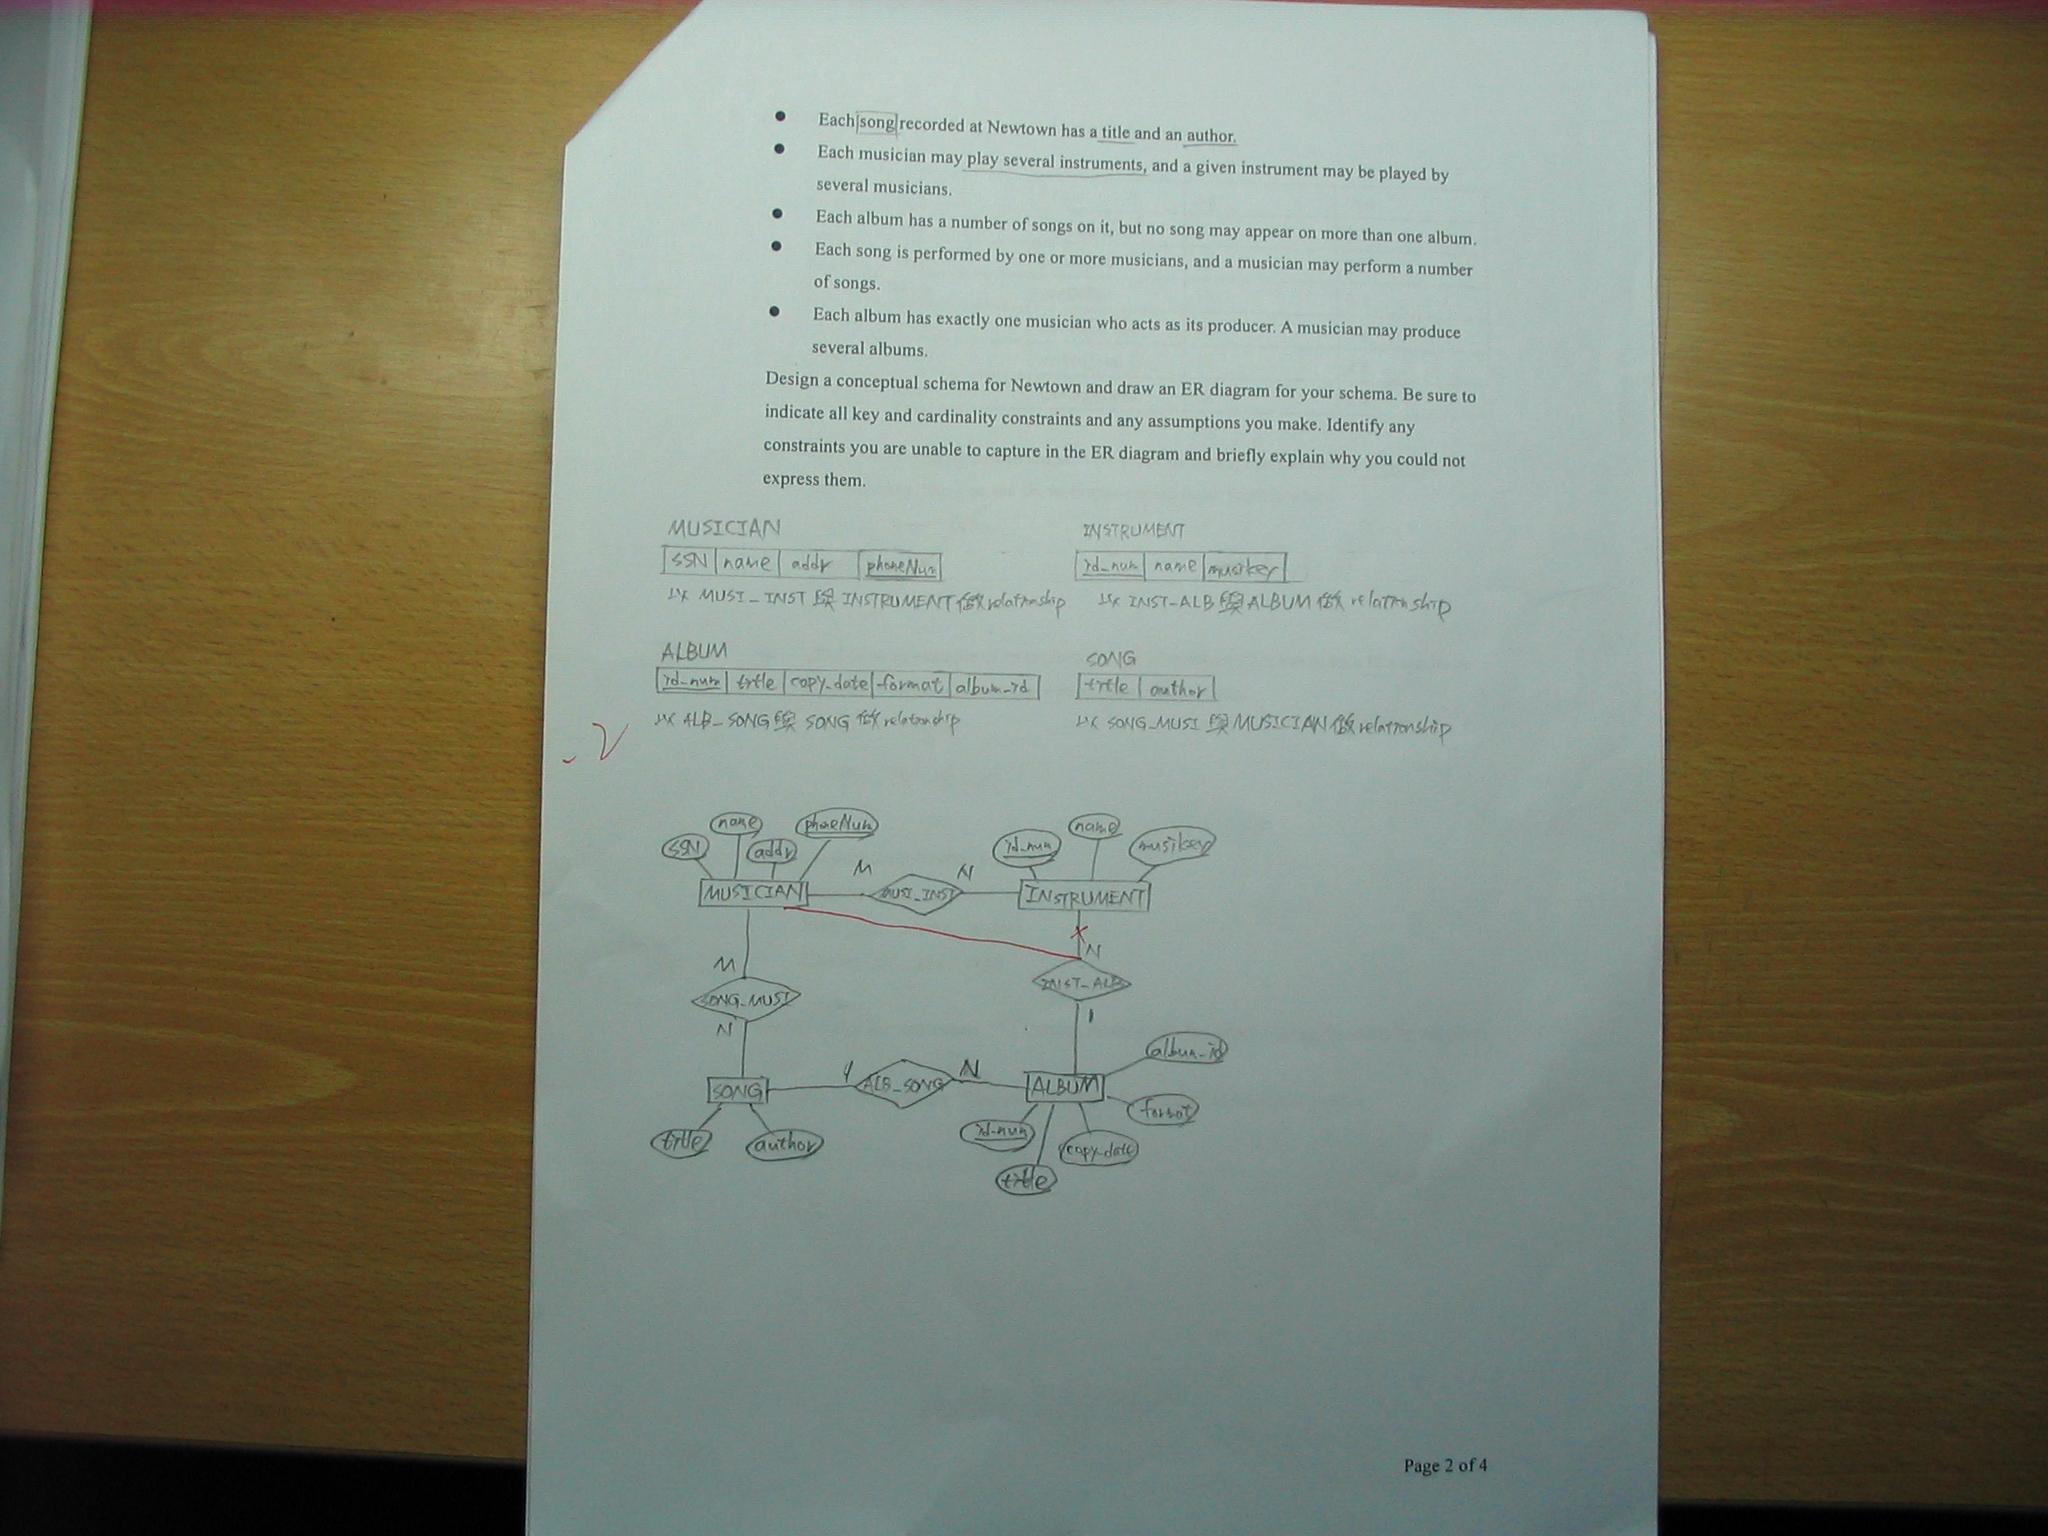 ● Each song recorded at Newtown has a title and an author.
● Each musician may play several instruments, and a given instrument may be played by
several musicians.
● Each album has a number of songs on it, but no song may appear on more than one album.
● Each song is performed by one or more musicians, and a musician may perform a number
of songs.
● Each album has exactly one musician who acts as its producer. A musician may produce
several albums.
Design a conceptual schema for Newtown and draw an ER diagram for your schema. Be sure to
indicate all key and cardinality constraints and any assumptions you make. Identify any
constraints you are unable to capture in the ER diagram and briefly explain why you could not
express them.
MUSICIAN
SSN name addr phoneNum
以 MUSI_INST 與 INSTRUMENT 做 relationship
INSTRUMENT
id_num name musikey
以 INST-ALB 與 ALBUM 做 relationship
ALBUM
id_num title copy_date format album_id
以 ALB_SONG 與 SONG 做 relationship
SONG
title author
以 SONG_MUSI 與 MUSICIAN 做 relationship
name phoneNum name
SSN addr id_num musikey
M N
MUSICIAN MUSI_INST INSTRUMENT
N
M
SONG_MUSI INST_ALB
N 1
album_id
1 N
SONG ALB_SONG ALBUM
format
title author id-num copy_date
title
Page 2 of 4